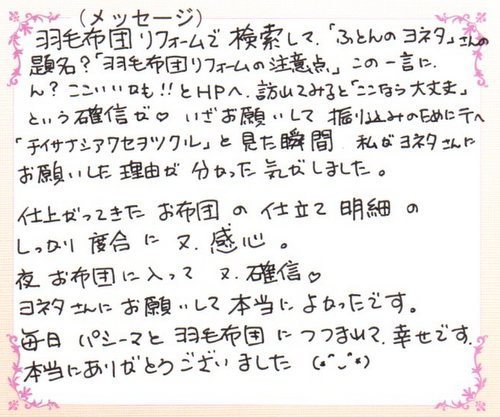 （メッセージ）
羽毛布団リフォームで検索して、「ふとんのヨネタ」さんの
題名？「羽毛布団リフォームの注意点」この一言に、
ん？ここいいかも!!とHPへ、訪れてみると「ここなら大丈夫」
という確信が♡ いざお願いして 振り込みのために
「チイサナシアワセヲツクル」と見た瞬間 私がヨネタさんに
お願いした理由が 分かった気がしました。
仕上がってきた お布団の 仕立て明細の
しっかり度合に 又、感心。
夜 お布団に入って 又、確信♡
ヨネタさんにお願いして本当によかったです。
毎日 パシーマと羽毛布団につつまれて、幸せです。
本当にありがとうございました (*^_^*)